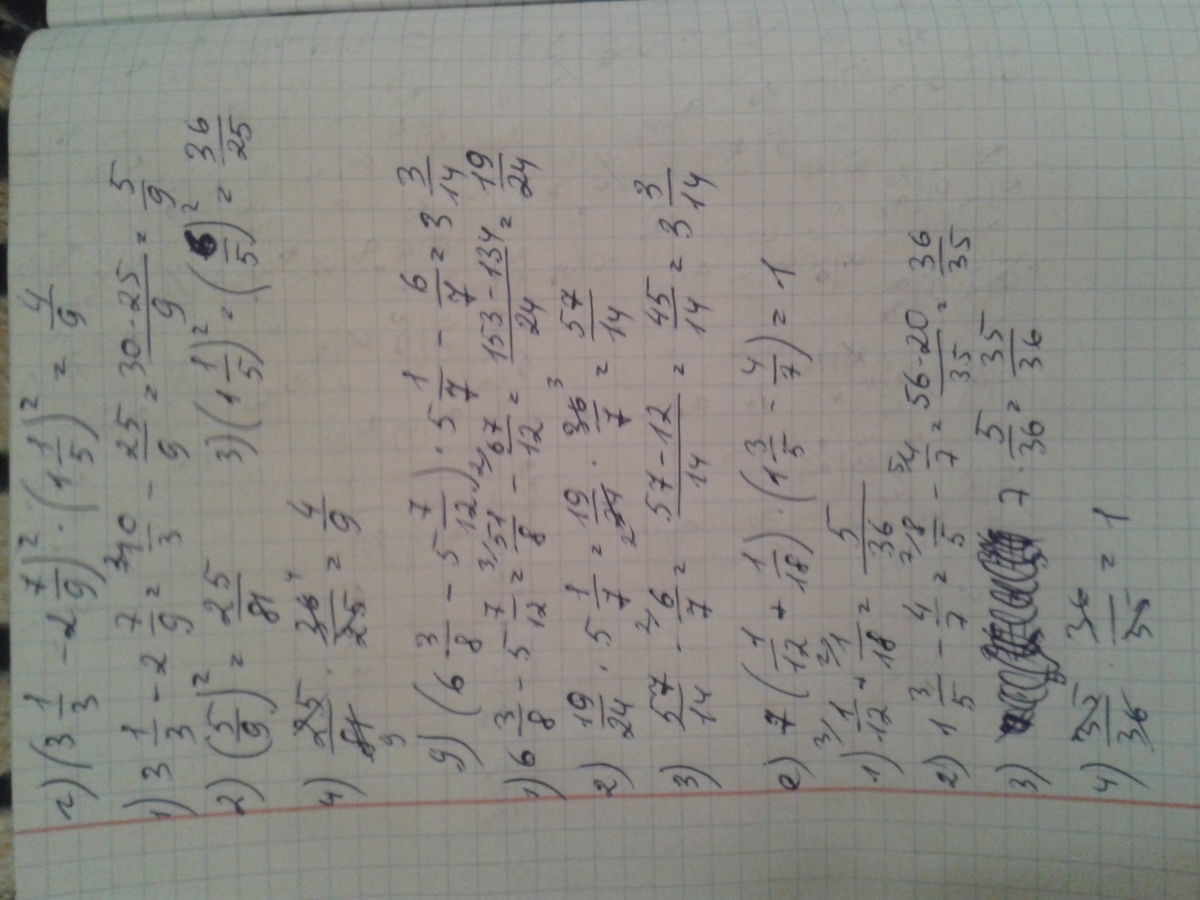 г) (3 1/3 - 2 7/9)² · (1 1/5)² = 4/9
1) 3 1/3 - 2 7/9 = 3/ 10/3 - 25/9 = 30-25/9 = 5/9
2) (5/9)² = 25/81 3) (1 1/5)² = (6/5)² = 36/25
4) 25/81 9 · 36 4/25 = 4/9
g) (6 3/8 - 5 7/12) · 5 1/7 - 6/7 = 3 3/14
1) 6 3/8 - 5 7/12 = 3/ 51/8 - 2/ 67/12 = 153-134/24 = 19/24
2) 19/24 · 5 1/7 = 19/24 2 · 36 3/7 = 57/14
3) 57/14 - 2/ 6/7 = 57-12/14 = 45/14 = 3 3/14
е) 7 (1/12 + 1/18) · (1 3/5 - 4/7) = 1
1) 3/ 1/12 + 2/ 1/18 = 5/36
2) 1 3/5 - 4/7 = 7/ 8/5 - 5/ 4/7 = 56-20/35 = 36/35
3) 7 · 5/36 = 35/36
4) 35/36 · 36/35 = 1